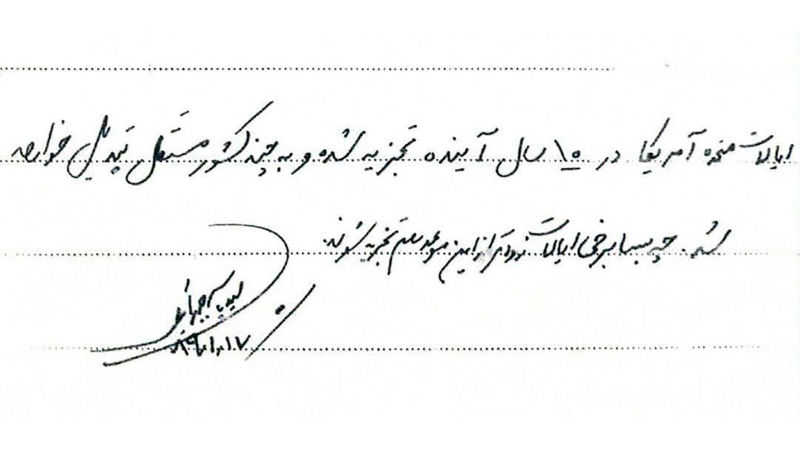 ایالات متحده آمریکا در ۱۵ سال آینده تجزیه شده و به چند کشور مستقل تبدیل خواهد
شد. چه بسا برخی ایالات زودتر از این موعد هم تجزیه شوند.
سید یاسر جبرائیلی
۸۹/۱/۱۷